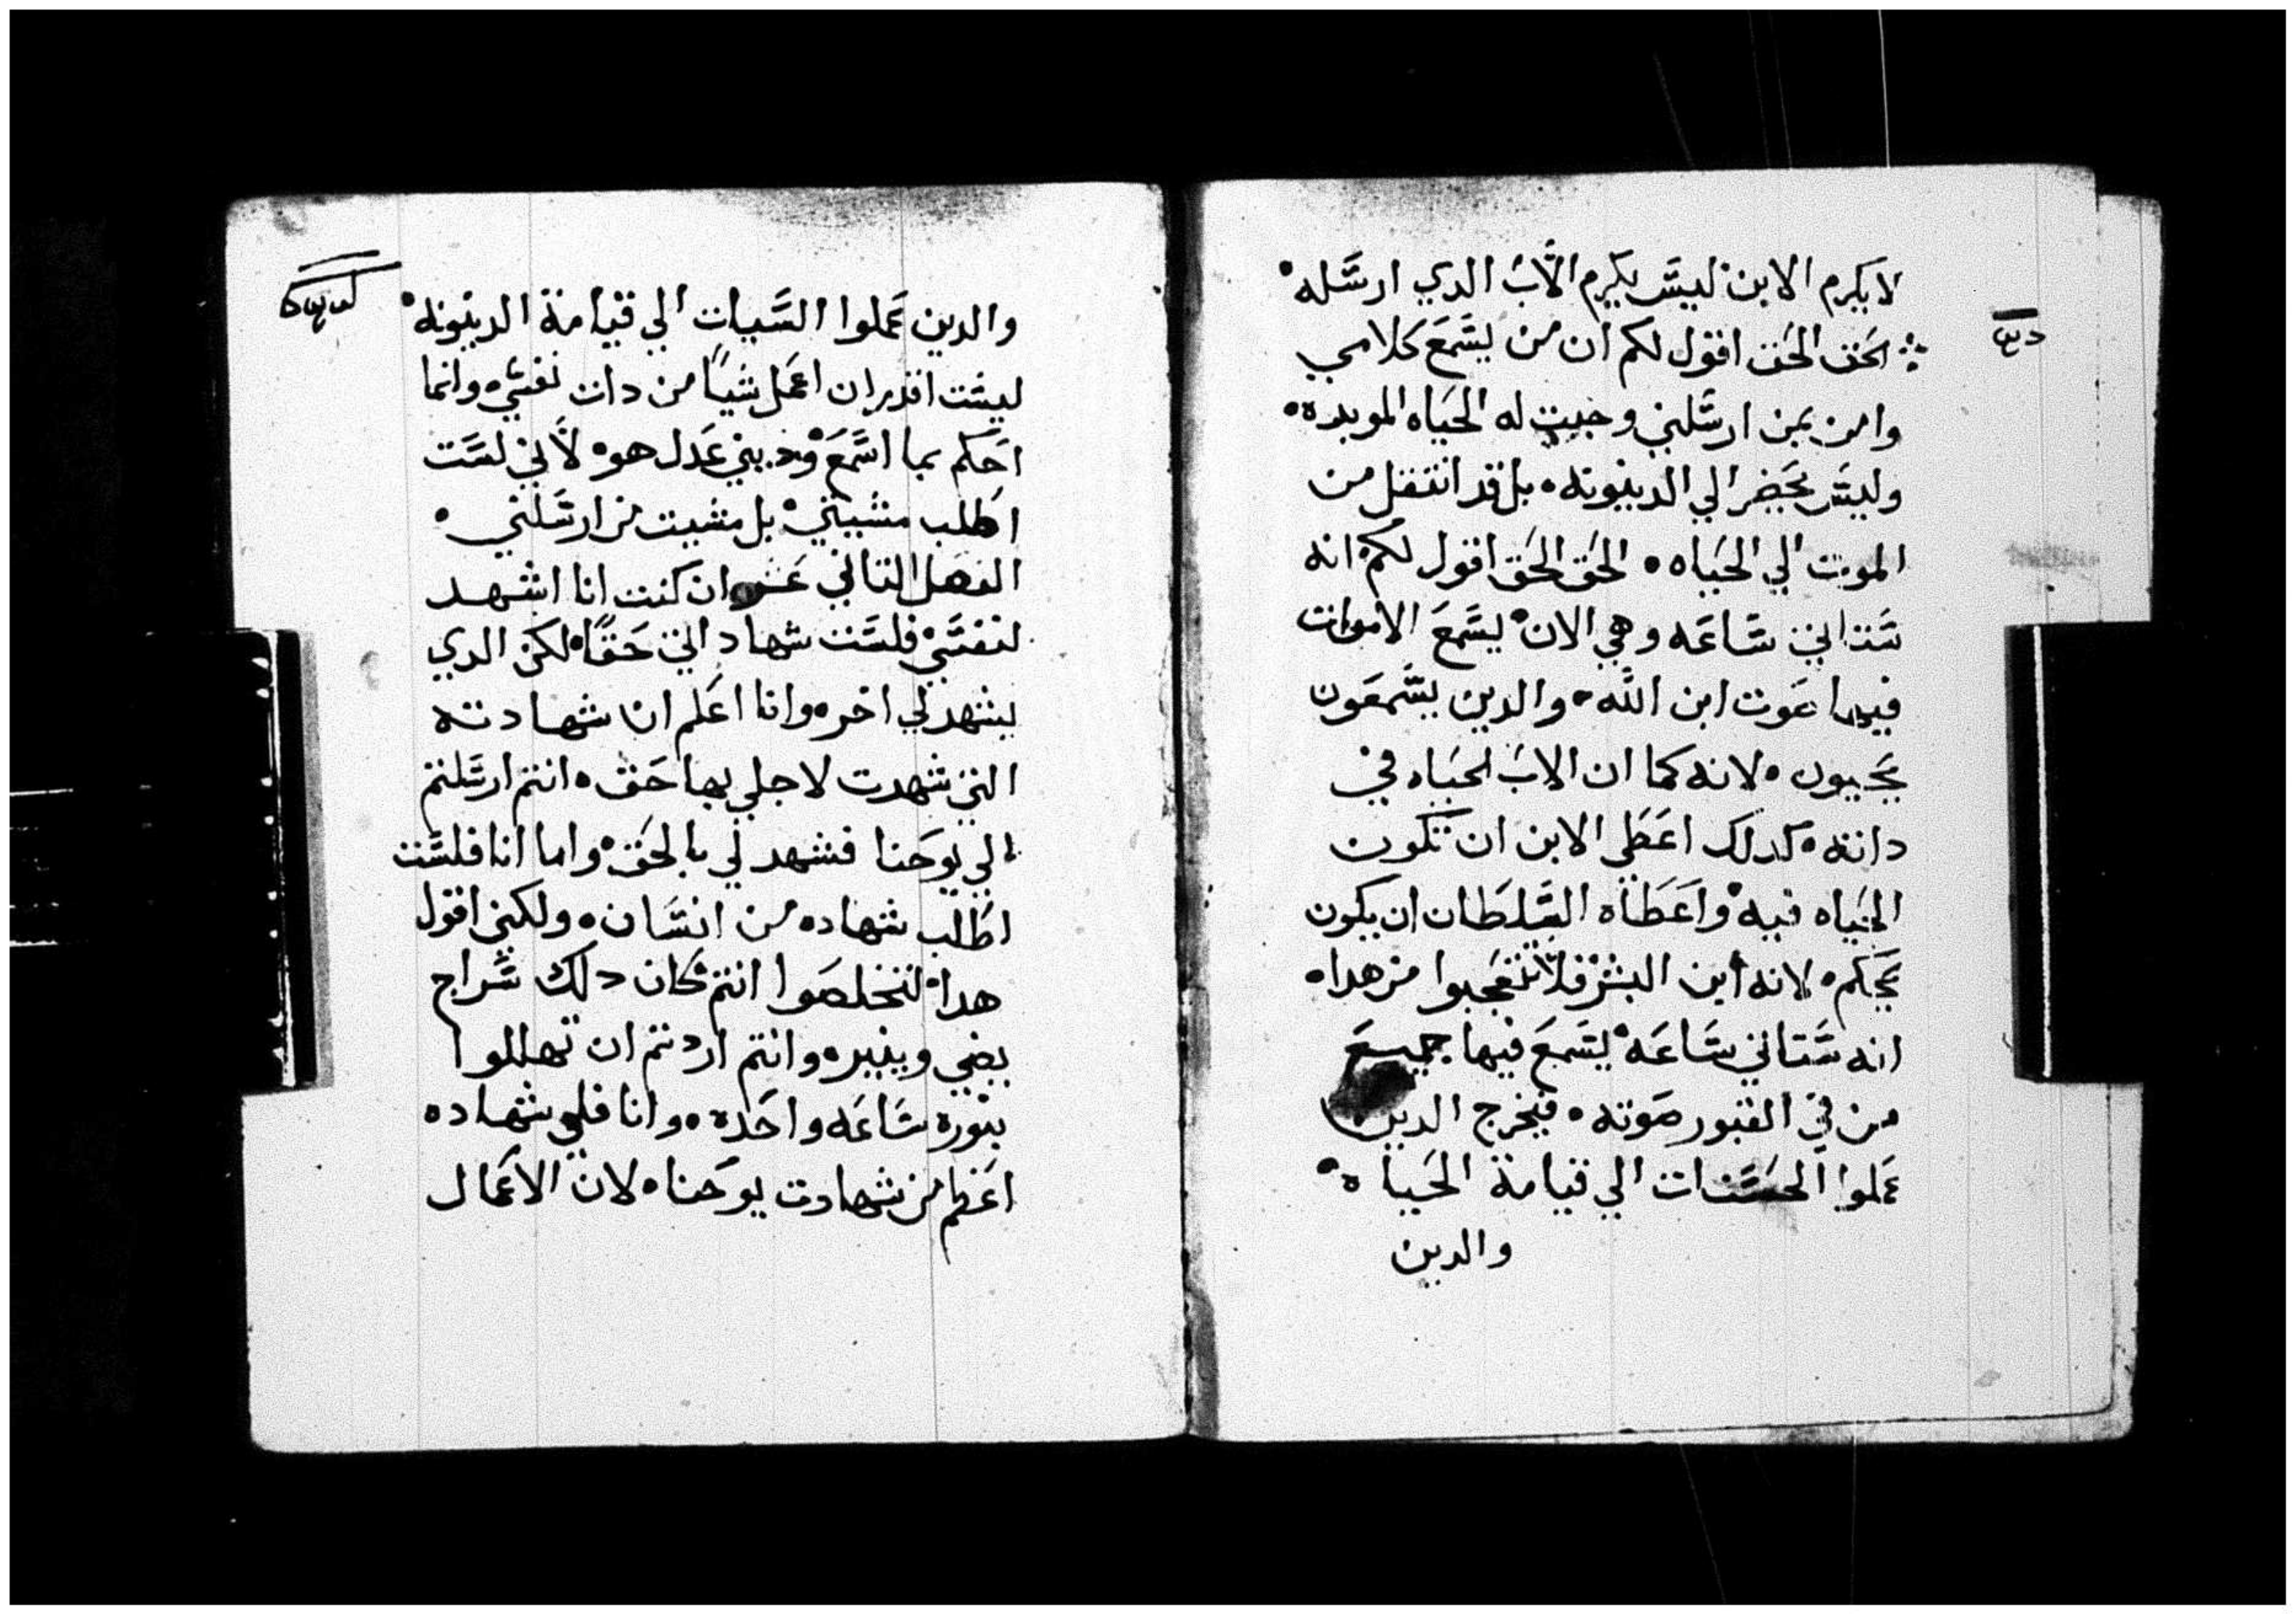 لا يكرم الابن ليس يكرم الاب الدي ارسله
الحق الحق اقول لكم ان من يسمع كلامي
وامن بمن ارسلني وجبت له الحياه الموبده
وليس يحضر الي الدينونه بل قد انتقل من
الموت الي الحياه الحق الحق اقول لكم انه
ستاتي ساعه وهي الان يسمع الاموات
فيها صوت ابن الله والدين يسمعون
يحيون لانه كما ان الاب الحياه في
داته كدلك اعطي الابن ان تكون
الحياه فيه واعطاه السلطان ان يكون
يحكم لانه ابن البشر فلا تتعجبوا من هدا
انه ستاتي ساعه يسمع فيها جميع
من في القبور صوته فيخرج الدين
عملوا الحسنات الي قيامة الحياة
والدين
والدين عملوا السيات الي قيامة الدينونه
ليست اقدر ان اعمل شيا من دات نفسي وانما
احكم بما اسمع وديني عدل هو لاني لست
اطلب مشيتي بل مشيت من ارسلني
الفصل التاني عشر ان كنت انا اشهد
لنفسي فلست شهادتي حقا لكن الدي
يشهد لي اخر وانا اعلم ان شهادته
التي شهدت لاجلي بها حق انتم ارسلتم
الي يوحنا فشهد لي بالحق واما انا فلست
اطلب شهاده من انسان ولكني اقول
هدا لتخلصوا انتم كان دلك سراج
يضي وينير وانتم اردتم ان تهللوا
بنوره ساعه واحده وانا فلي شهاده
اعظم من شهادت يوحنا لان الاعمال